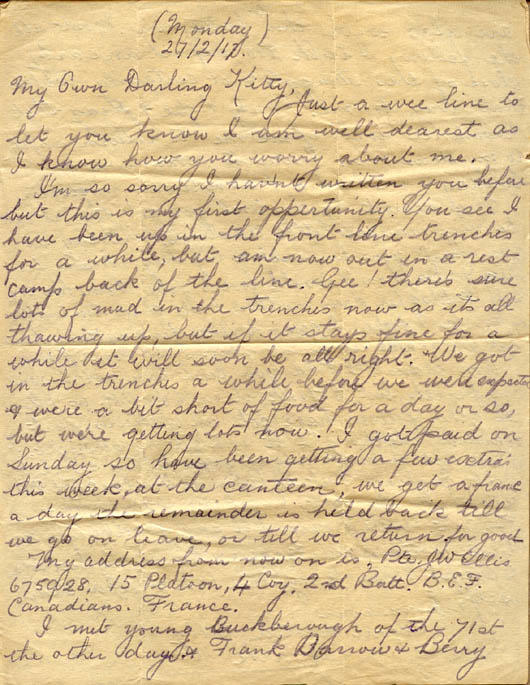 (Monday)
27/2/17.
My Own Darling Kitty,
Just a wee line to
let you know I am well dearest as
I know how you worry about me.
I'm so sorry I havn't written you before
but this is my first opportunity. You see I
have been up in the front line trenches
for a while, but am now out in a rest
camp back of the line. Gee! there's sure
lots of mud in the trenches now as it's all
thawing up, but if it stays fine for a
while it will soon be all right. We got
in the trenches a while before we were expected
& were a bit short of food for a day or so,
but we're getting lots now. I got paid on
Sunday so have been getting a few extra's
this week, at the canteen, we get a franc
a day the remainder is held back till
we go on leave, or till we return for good
My address from now on is, Pte. J.W. Ellis
675928, 15 Platoon, 4 Coy. 2nd Batt. B.E.F.
Canadians. France.
I met young Buckborough of the 71st
the other day, & Frank Darrow & Berry